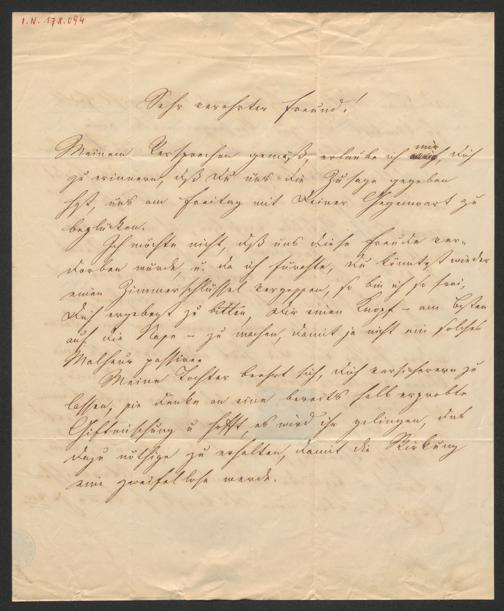 I.N. 178.094
Sehr verehrter Freund!
Meinem Versprechen gemäß, erlaube ich mir, Dich
zu erinnern, daß Du uns die Zusage gegeben
hast, uns am Freitag mit Deiner Gegenwart zu
beglücken.
Ich möchte nicht, daß uns diese Freude ver-
dorben würde, u. da ich fürchte, Du könntest wieder
einen Zimmerschlüssel vergessen, so bin ich so frei,
Dich ergebenst zu bitten, Dir einen Knopf – am besten
auf die Nase – zu machen, damit ja nicht ein solches
Malheur passire.
Meine Tochter beehrt sich, Dich versichern zu
lassen, sie denke an eine bereits selb erprobte
Giftmischung u hofft, es wird ihr gelingen, das
dazu nöthige zu erhalten, damit die Wirkung
eine zweifellose werde.